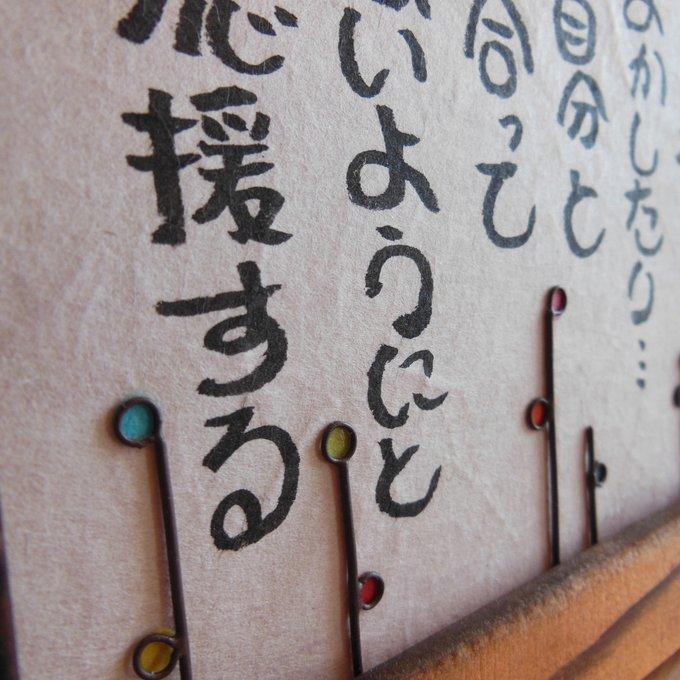 かしたり…
自分と
合って
いようにと
応援する